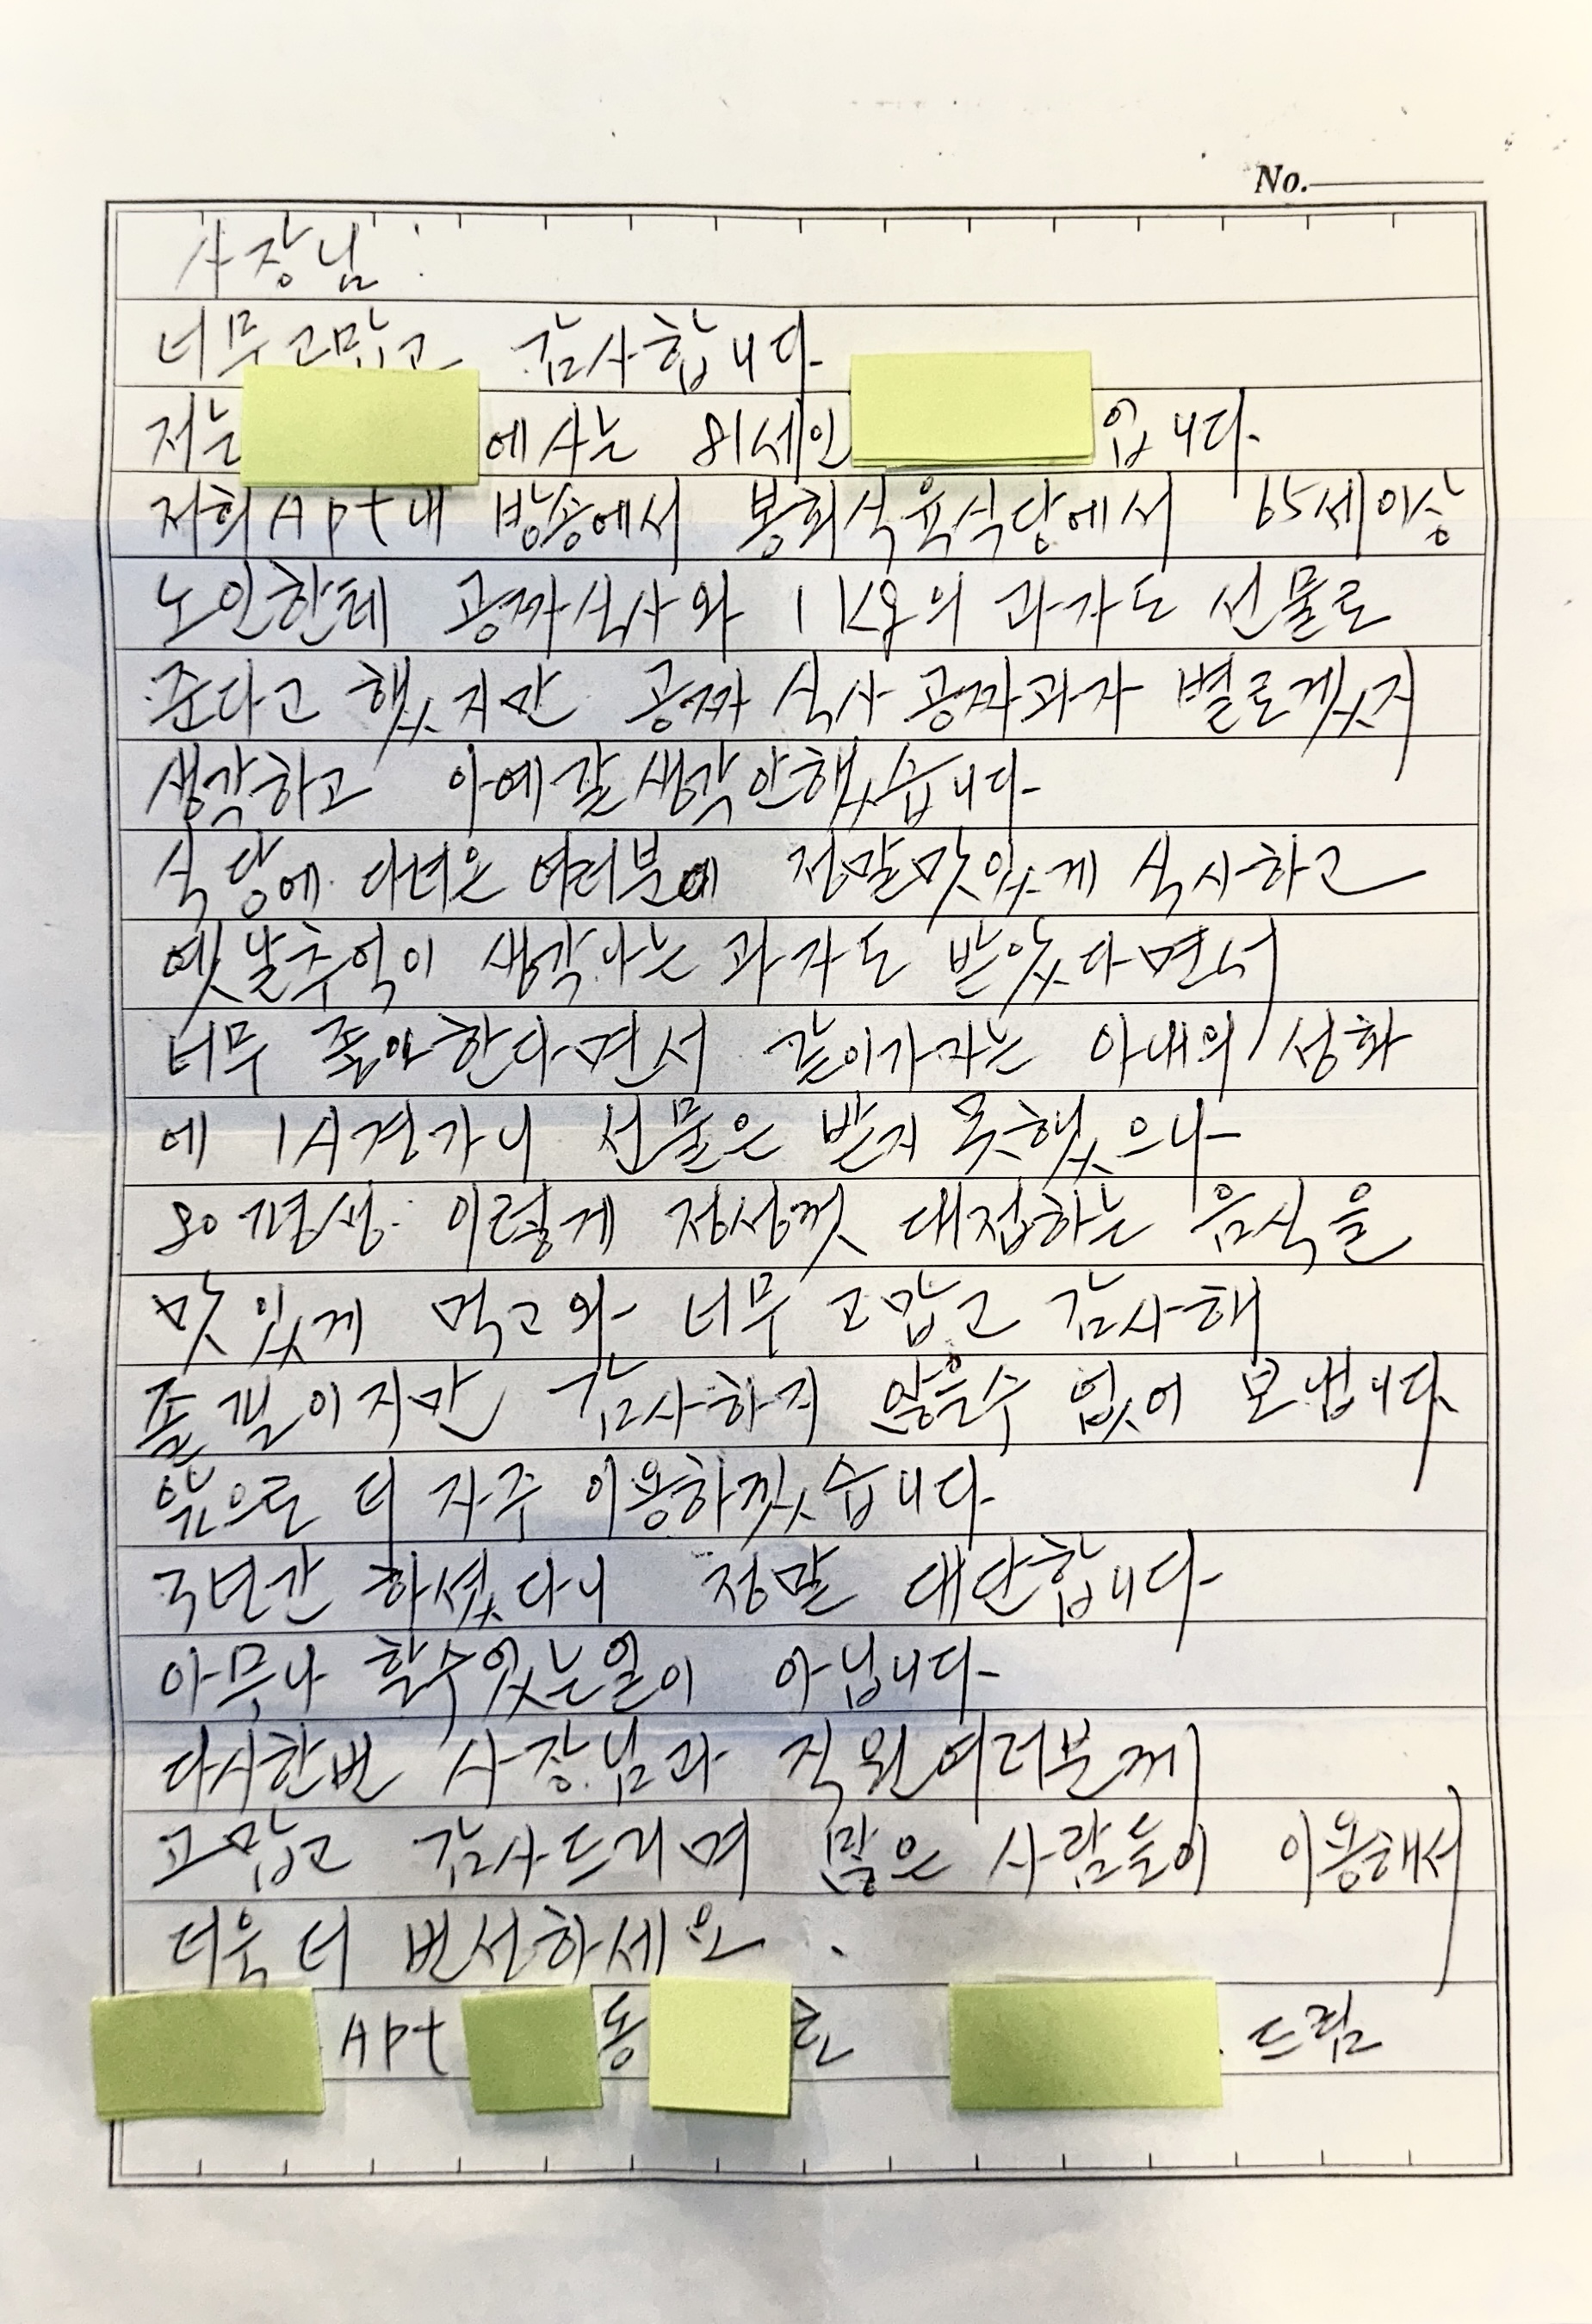 No.
사장님:
너무 고맙고 감사합니다.
저는 에 사는 81세인 입니다.
저희 Apt내 방송에서 봉희식육식당에서 65세이상
노인한테 공짜식사와 1Kg의 과자도 선물로
준다고 했지만 공짜 식사 공짜과자 별로겠지
생각하고 아예갈생각안했습니다.
식당에 다녀온 여러분에 정말맛있게 식사하고
옛날추억이 생각나는 과자도 받았다면서
너무 좋아한다면서 같이가자는 아내의 성화
에 1시경가니 선물은 받지 못했으나
80평생 이렇게 정성껏 대접하는 음식을
맛있게 먹고와 너무 고맙고 감사해
졸필이지만 감사하지 않을수 없어 보냅니다.
앞으로 더 자주 이용하겠습니다.
3년간 하셨다니 정말 대단합니다.
아무나 할수있는일이 아닙니다.
다시한번 사장님과 직원여러분께
고맙고 감사드리며 많은 사람들이 이용해서
더욱 더 번성하세요.
Apt 동 호 드림